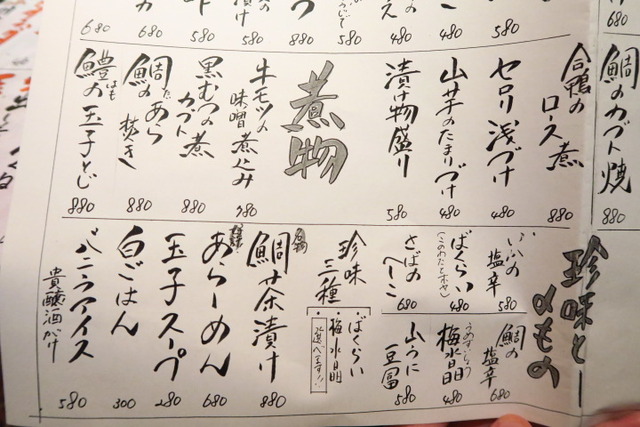 鯛のカブト焼
880
680
合鴨の
ロース煮
880
セロリ浅づけ
480
山芋のたまりづけ
480
漬け物盛り
580
煮物
牛モツの
味噌煮込み
780
黒むつの煮
カブト
880
鯛のあら
だい
焚き
880
鱧の玉子とじ
はも
880
珍味と
〆もの
いかの
塩辛
580
鯛の
塩辛
680
ばくらい
(このわたとホヤ)
480
梅水晶
うめすいしょう
480
さばの
へしこ
680
山うに
豆腐
580
珍味
三種
ばくらい
梅水晶
選べます!!
鯛茶漬け
880
あらーめん
680
玉子スープ
280
白ごはん
300
バニラアイス
貴醸酒がけ
580
680
680
580
880
580
480
480
580